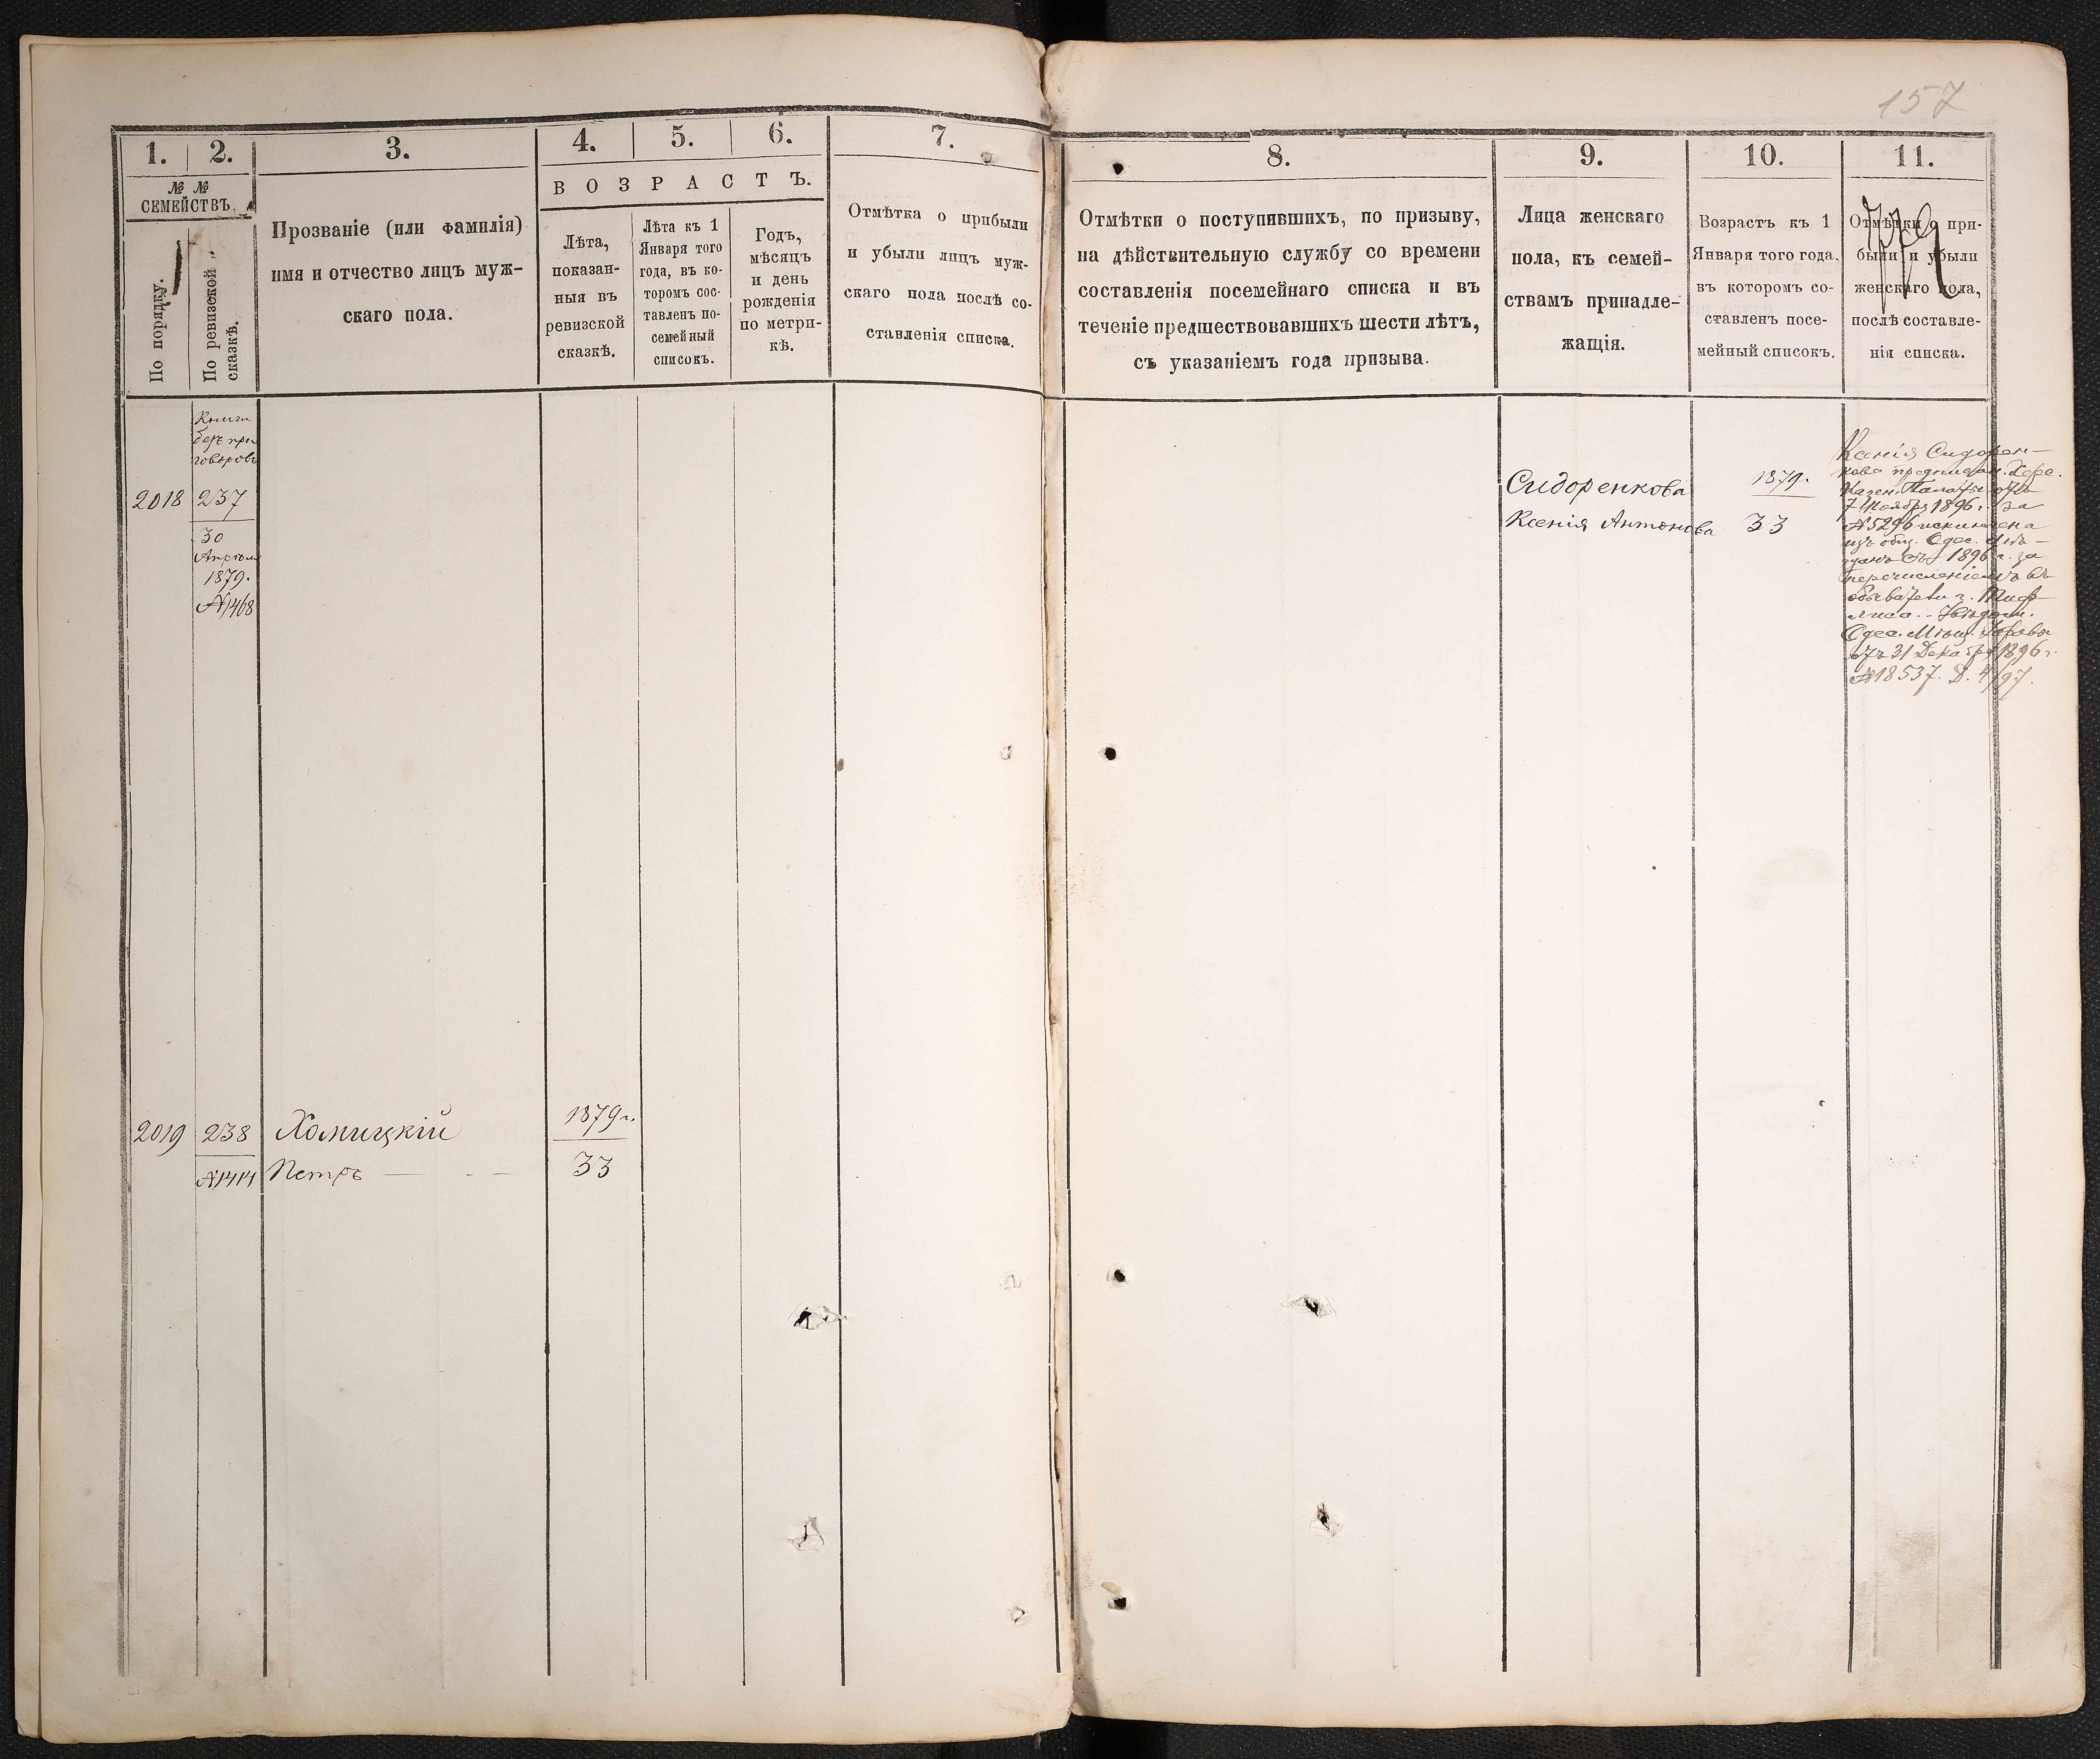 157
1.
2.
3.
4.
5.
6.
7.
8.
9.
10.
11.
№ №
СЕМЕЙСТВЪ.
По порядку.
По ревизской
сказкѣ.
Прозваніе (или фамилія)
имя и отчество лицъ муж-
скаго пола.
ВОЗРАСТЪ.
Лѣта,
показан-
ныя въ
ревизской
сказкѣ.
Лѣта къ 1
Января того
года, въ ко-
торомъ сос-
тавленъ по-
семейный
списокъ.
Годъ,
мѣсяцъ
и день
рожденія
по метри-
кѣ.
Отмѣтка о прибыли
и убыли лицъ муж-
скаго пола послѣ со-
ставленія списка.
Отмѣтки о поступившихъ, по призыву,
на дѣйствительную службу со времени
составленія посемейнаго списка и въ
теченіе предшествовавшихъ шести лѣтъ,
съ указаніемъ года призыва.
Лица женскаго
пола, къ семей-
ствамъ принадле-
жащія.
Возрастъ къ 1
Января того года,
въ которомъ со-
ставленъ посе-
мейный списокъ.
Отмѣтки о при-
были и убыли
женскаго пола,
послѣ составле-
нія списка.
Книги
безъ при
говоровъ
2018
237
30
Апрѣля
1879.
№1468
Сидоренкова
Ксенія Антонова
1879г.
33
Ксенія Сидорен-
кова предписан. Хере.
Казен. Палаты отъ
7 Ноября 1896 г. за
№5296 исключена
изъ общ. Одес. мѣ-
щанъ съ 1896 г. за
перечисленіемъ въ
обыватели г. Тиф-
лиса.
Одес. Мѣщ. Управы
отъ 31 Декабря 1896 г.
№18537. Д. 4/97.
2019
238
№1414
Хомицкій
Петръ
1879г.
33